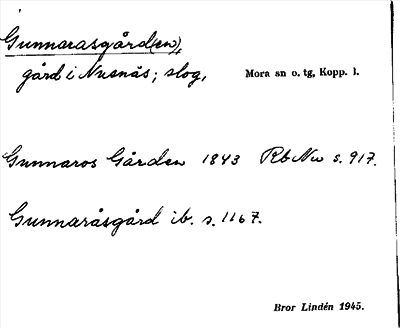 Gunnarasgård(en),
gård i Nusnäs; slog,
Mora sn o. tg, Kopp. l.
Gunnaros Gården 1843 Rb Nu s. 917.
Gunnaråsgård ib. s. 1167.
Bror Lindén 1945.